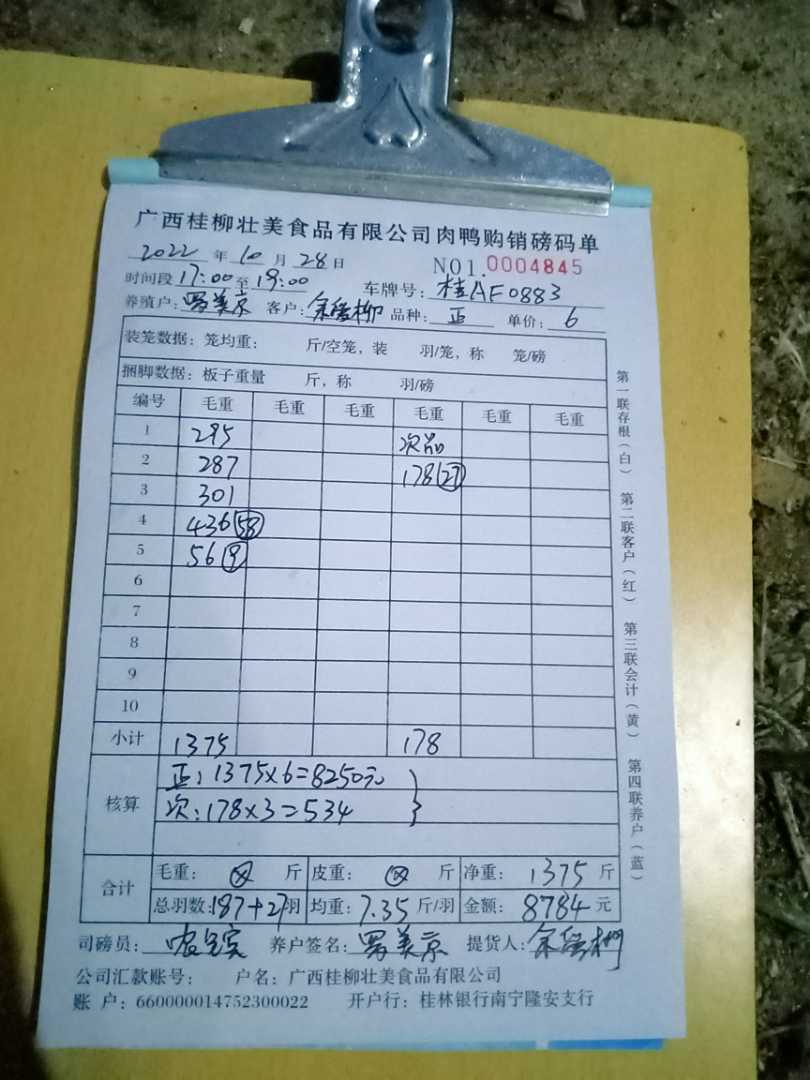 广西桂柳壮美食品有限公司肉鸭购销磅码单
2022 年 10 月 28 日 NO1.0004845
时间段 17:00 至 19:00 车牌号: 桂AF0883
养殖户: 罗美京 客户: 余 柳 品种: 正 单价: 6
装笼数据: 笼均重: 斤/空笼, 装 羽/笼, 称 笼/磅
捆脚数据: 板子重量 斤, 称 羽/磅
编号 毛重 毛重 毛重 毛重 毛重 毛重
1 295 次品
2 287 178 27
3 301
4 436 58
5 56 9
6
7
8
9
10
小计 1375 178
核算 正: 1375×6=8250元
次: 178×3=534
合计 毛重: ⊗ 斤 皮重: ⊗ 斤 净重: 1375 斤
总羽数: 187+27 羽 均重: 7.35 斤/羽 金额: 8784 元
司磅员: 养户签名: 罗美京 提货人: 余
公司汇款账号: 户名: 广西桂柳壮美食品有限公司
账 户: 660000014752300022 开户行: 桂林银行南宁隆安支行
第一联存根(白) 第二联客户(红) 第三联会计(黄) 第四联养户(蓝)